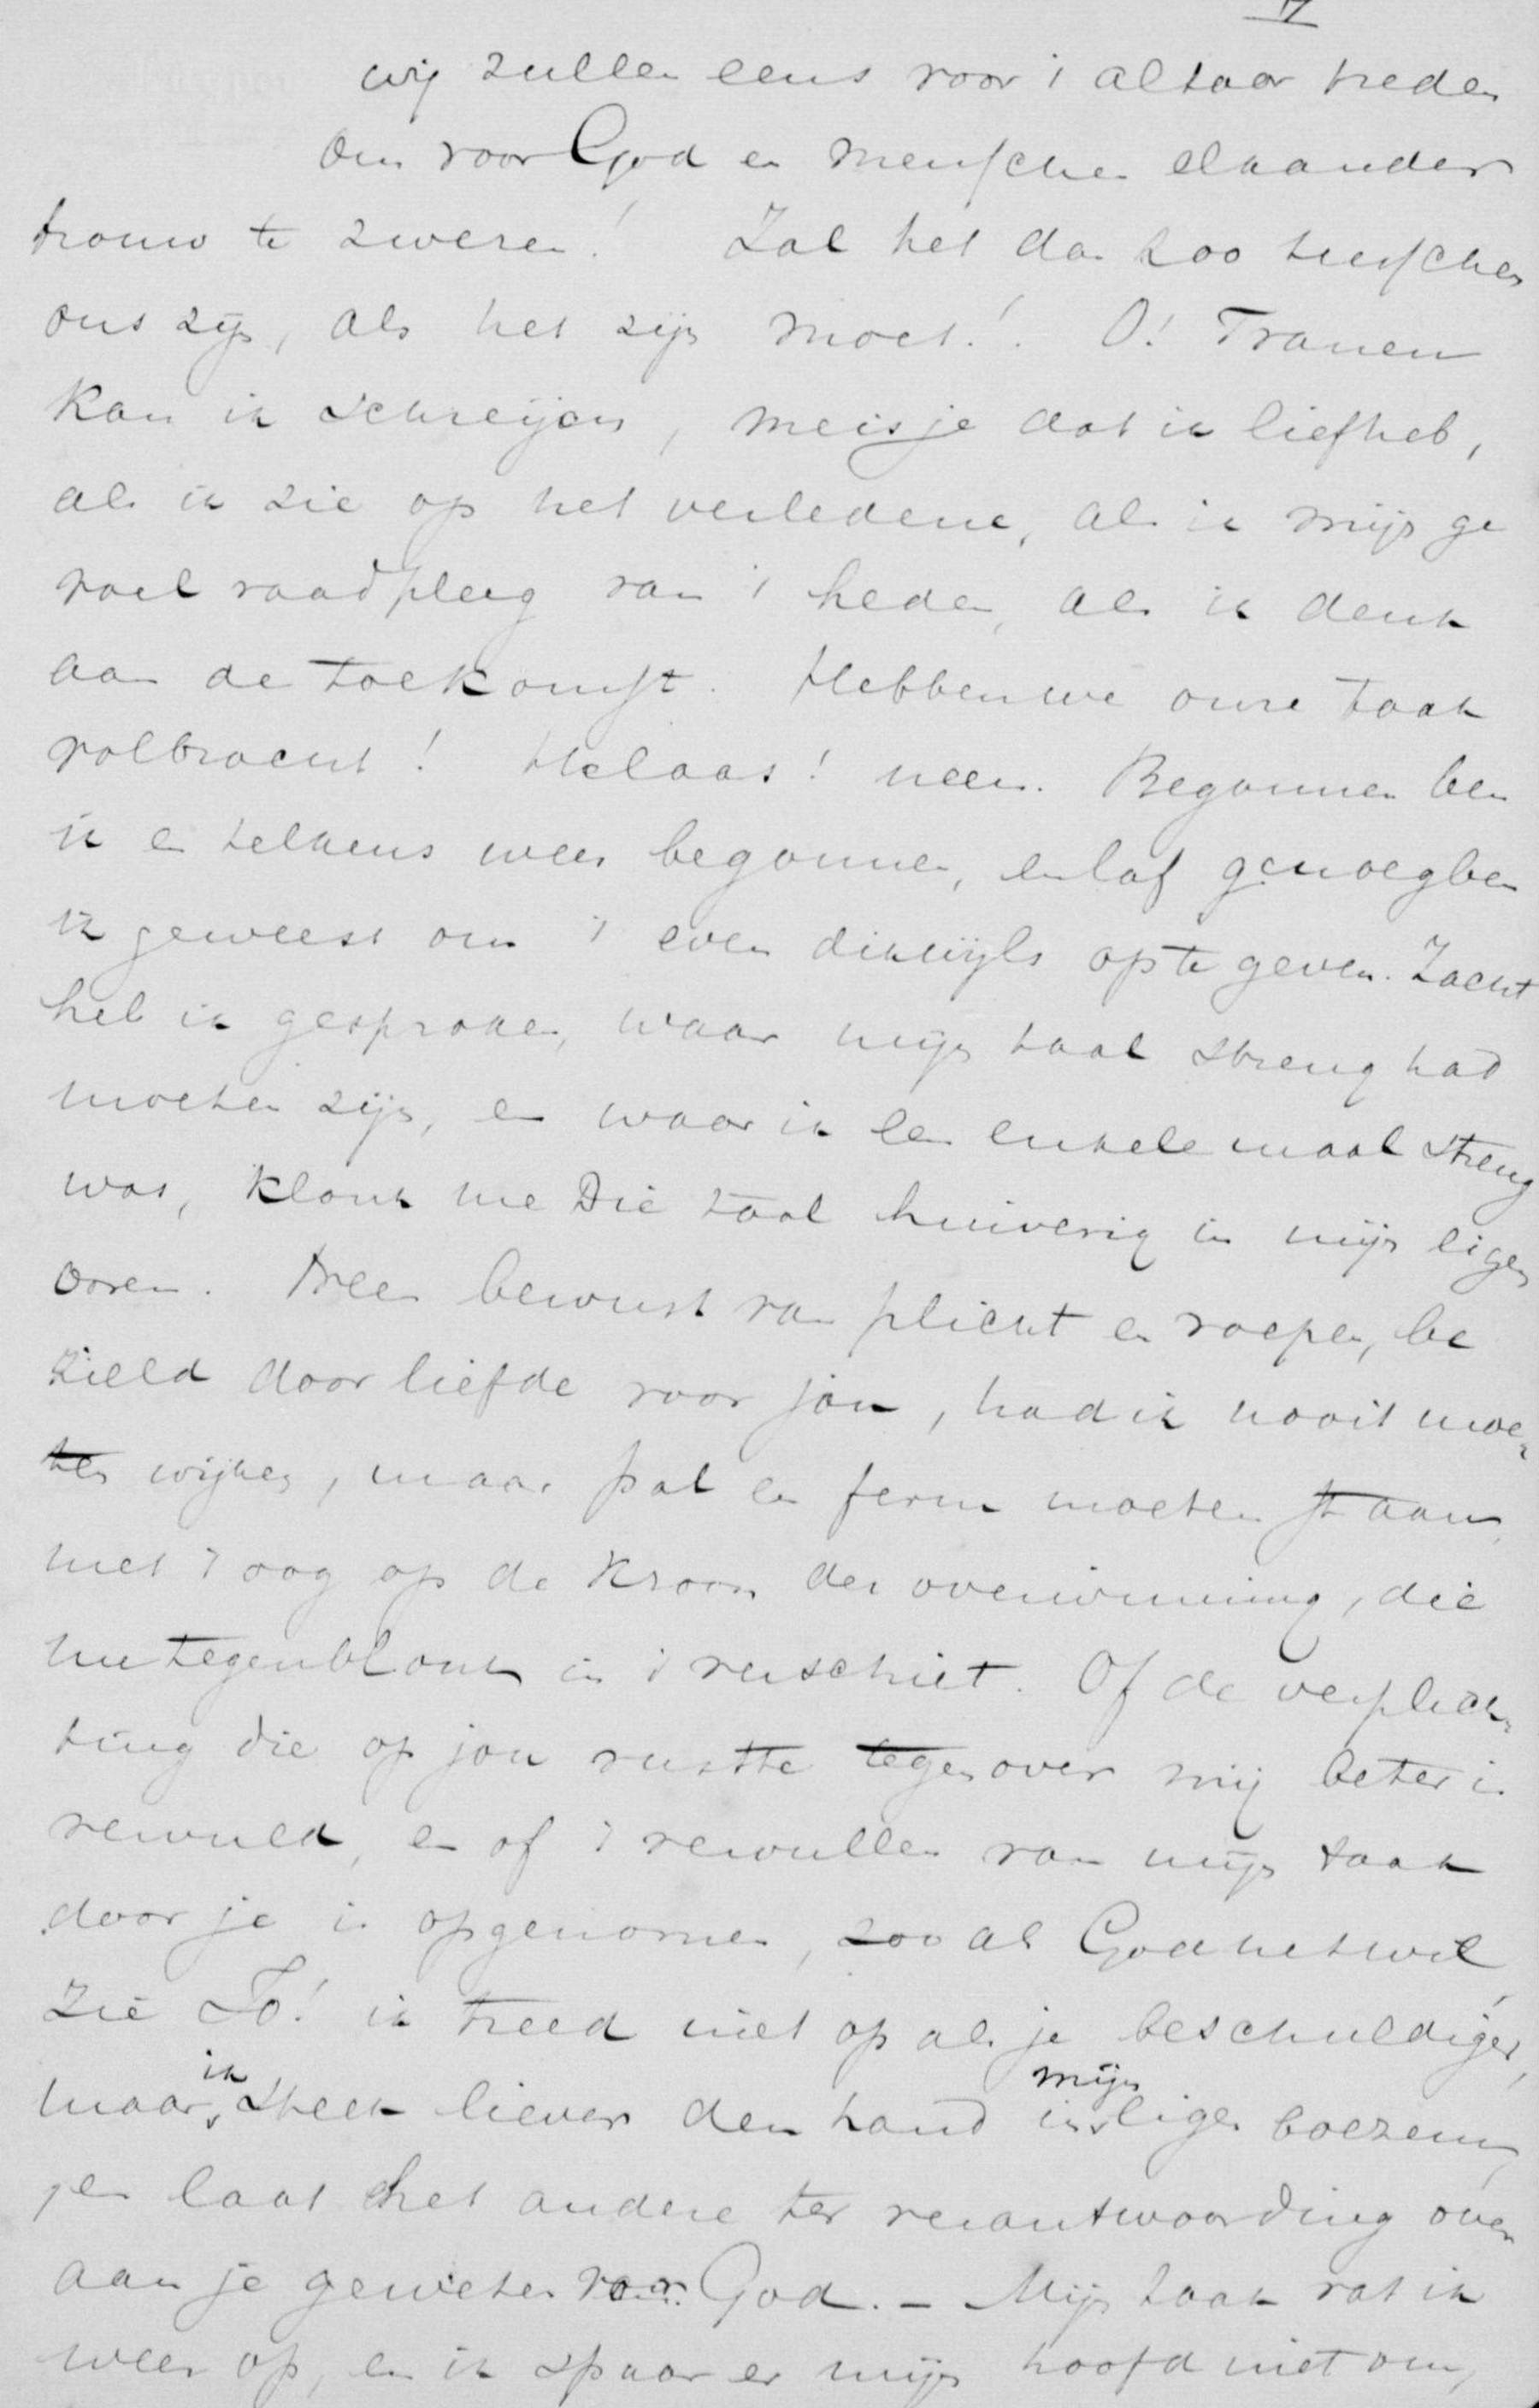 7
wij zullen eens voor 't altaar treden
om voor God en menschen elkander
trouw te zweren! Zal het dan zoo tusschen
ons zijn, als het zijn moet!. O! Tranen
kan ik schreijen, meisje dat ik liefheb,
als ik zie op het verledene, als ik mijn ge
voel raadpleeg van 't heden, als ik denk
aan de toekomst. Hebben we onze taak
volbracht! Helaas! neen. Begonnen ben
ik en telkens weer begonnen, en laf genoeg ben
ik geweest om 't even dikwijls op te geven. Zacht
heb ik gesproken, waar mijn taal streng had
moeten zijn, en waar ik een enkele maal streng
was, klonk me die taal huiverig in mijn eigen
ooren. Neen bewust van plicht en roepen, be
zield door liefde voor jou, had ik nooit moe
ten wijken, maar pal en ferm moeten staan,
met 't oog op de kroon der overwinning, die
me tegenblonk in 't verschiet. Of de verplich
ting die op jou rustte tegenover mij beter is
vervuld, en of 't vervullen van mijn taak
door je is opgenomen, zoo als God het wil,
zie Jo! ik treed niet op als je beschuldiger,
maar ik steek liever den hand in mijn eigen boezem,
en laat het andere ter verantwoording over
aan je geweten voor God. - Mijn taak vat ik
weer op, en ik spaar er mijn hoofd niet om,